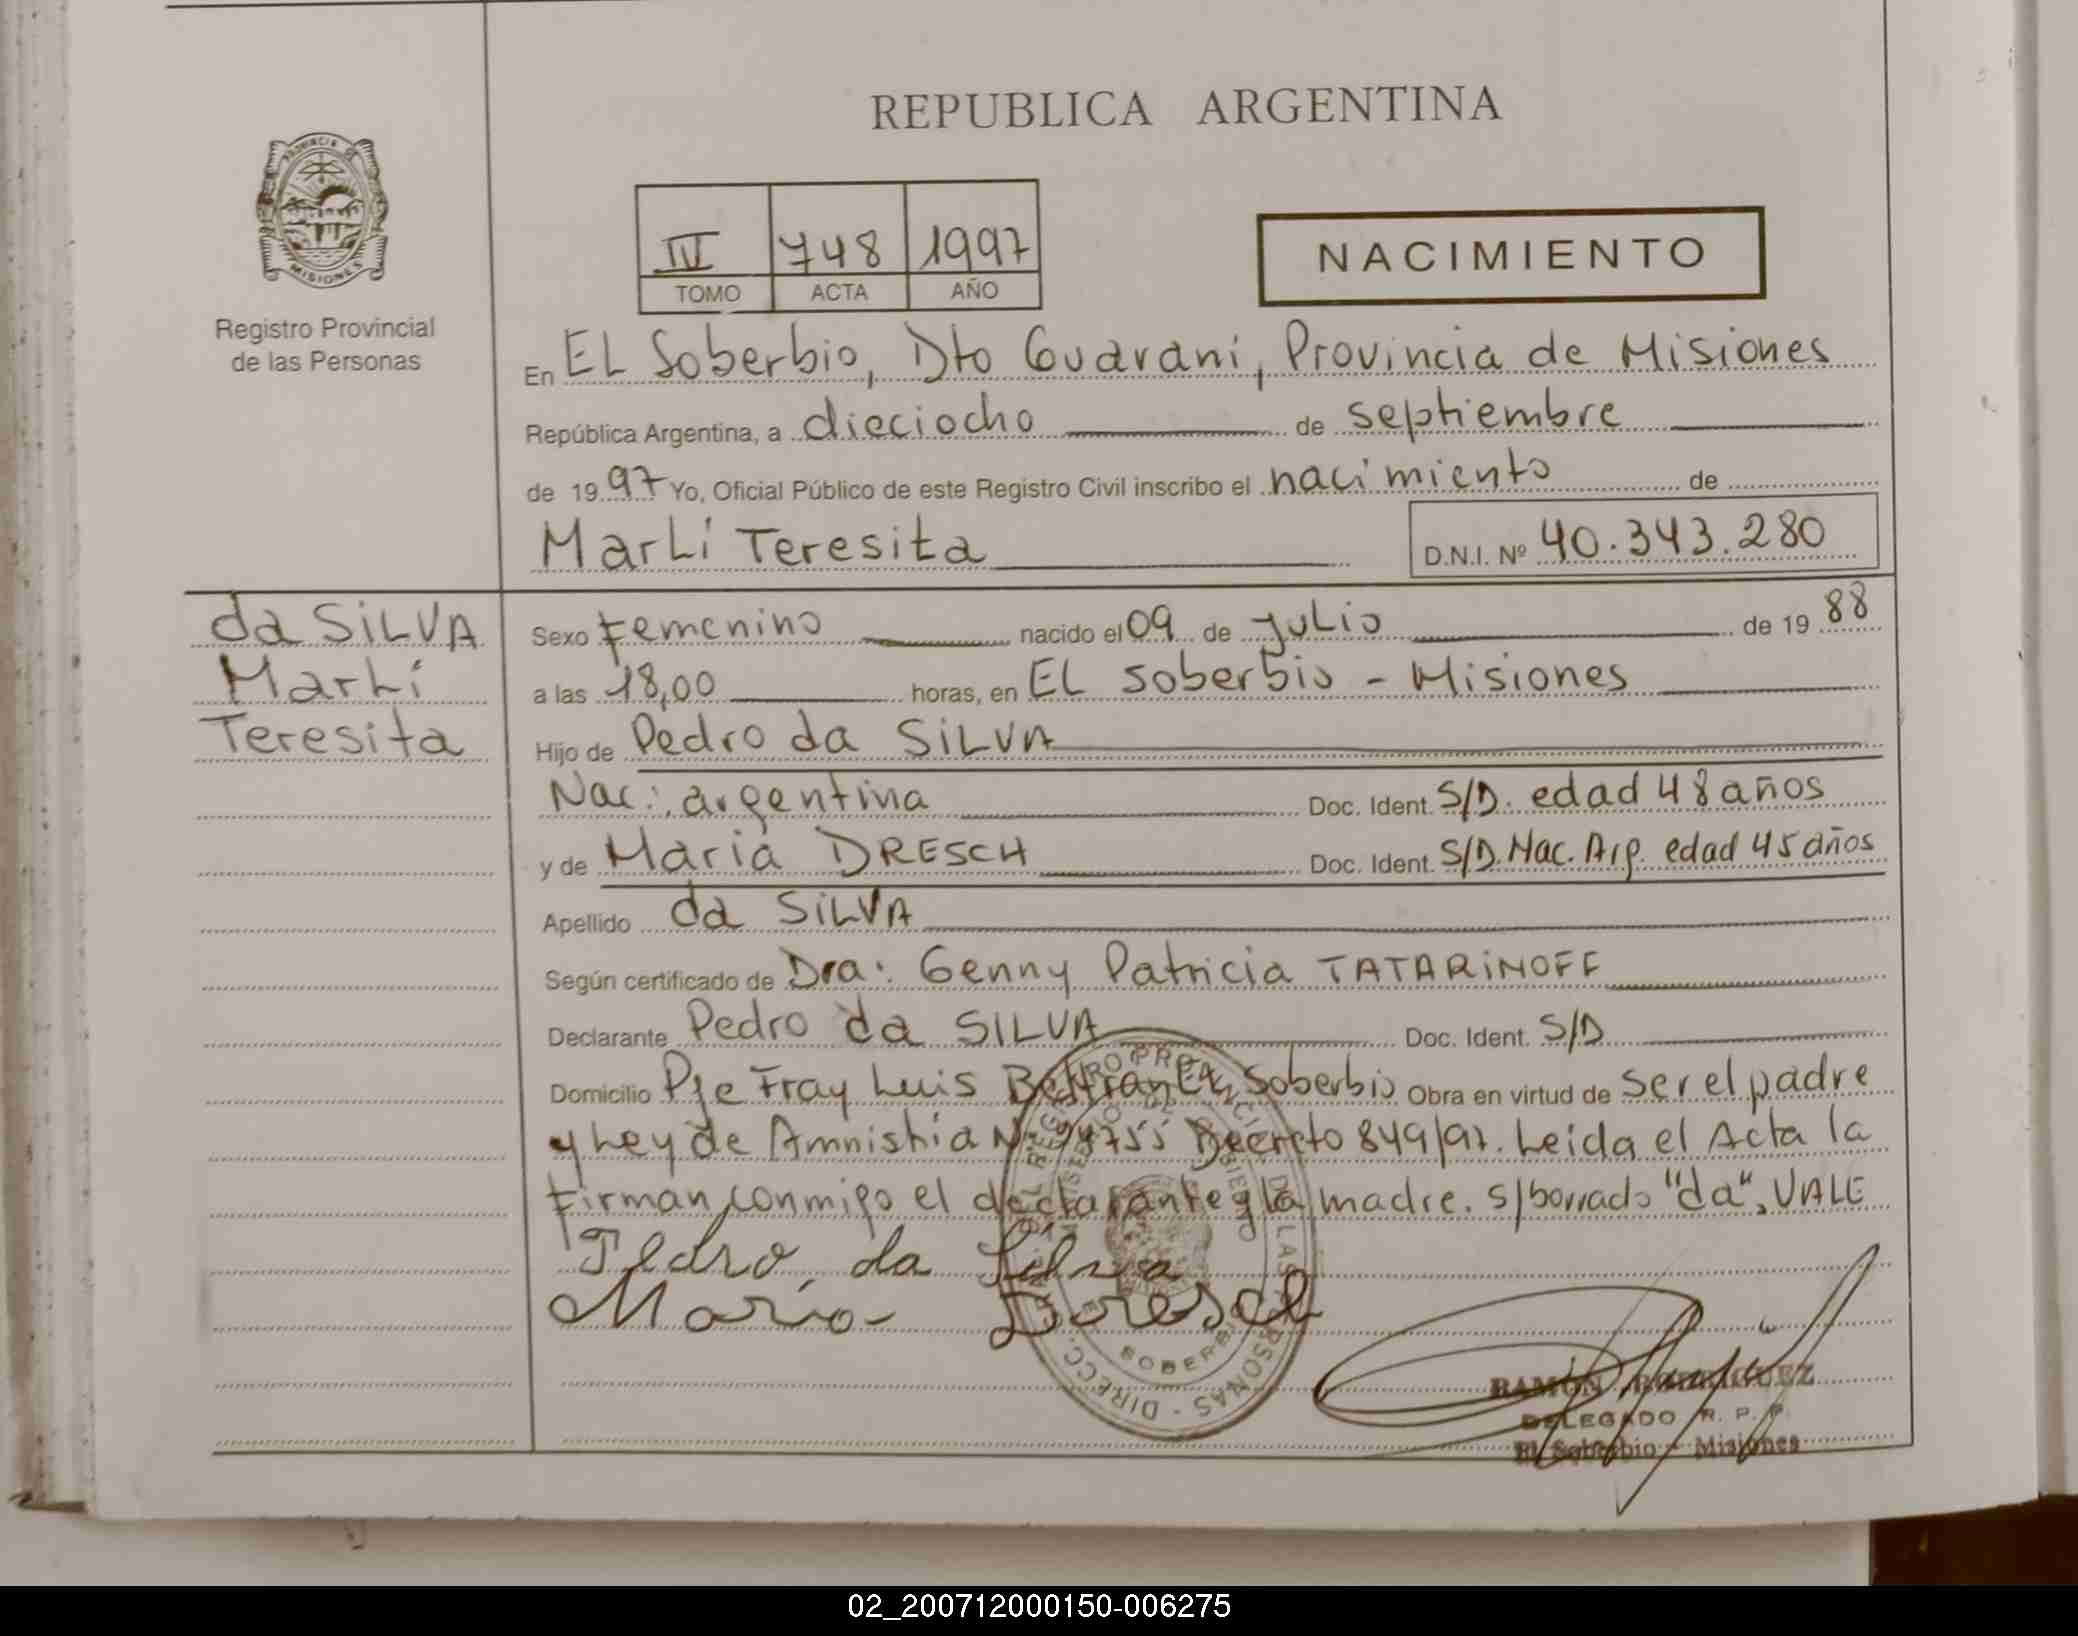 REPUBLICA ARGENTINA
PROVINCIA DE
MISIONES
Registro Provincial
de las Personas
IV 748 1997
TOMO ACTA AÑO
NACIMIENTO
En EL Soberbio, Dto Guarani, Provincia de Misiones
República Argentina, a dieciocho de septiembre
de 1997 Yo, Oficial Público de este Registro Civil inscribo el nacimiento de
MarLi Teresita
D.N.I. Nº 40.343.280
da SiLVA
MarLi
Teresita
Sexo Femenino nacido el 09 de JuLio de 1988
a las 18,00 horas, en EL Soberbio - Misiones
Hijo de Pedro da SiLVA
Nac: argentina Doc. Ident. S/D. edad 48 años
y de Maria DRESCH Doc. Ident. S/D. Nac. Arg. edad 45 años
Apellido da SiLVA
Según certificado de Dra: Genny Patricia TATARiNOFF
Declarante Pedro da SILVA Doc. Ident. S/D
Domicilio Pje Fray Luis Beltran EL Soberbio Obra en virtud de ser el padre
y Ley de Amnistia Nº 24755 Decreto 849/97. Leida el Acta la
Firman conmigo el declarante y la madre. s/borrado "da", VALE
Pedro da Silva
Maria Dresch
SOBERBIO
RAMON RODRIGUEZ
DELEGADO R. P. P.
El Soberbio - Misiones
02_200712000150-006275